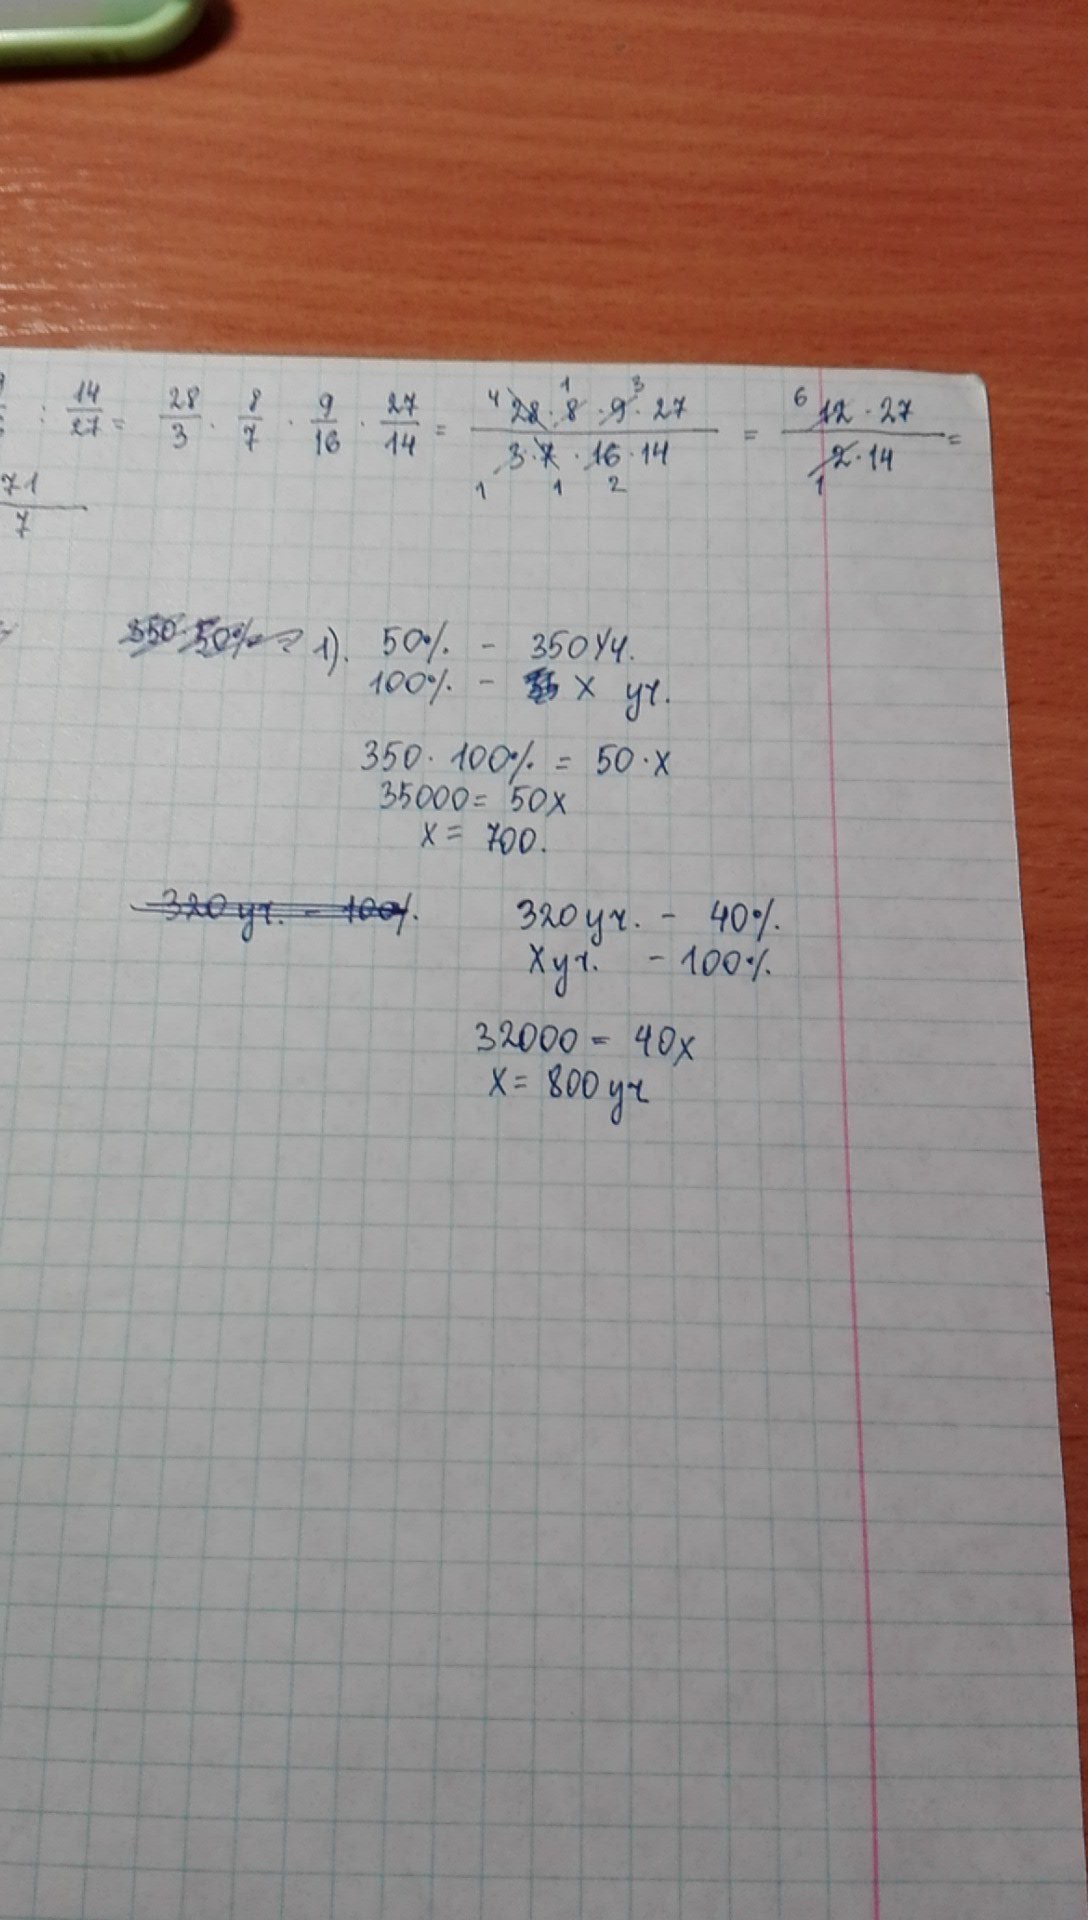 : 14/27 = 28/3 · 8/7 · 9/16 · 27/14 = 28·8·9·27 / 3·7·16·14 = 12·27 / 2·14 =
4 1 3 6
1 1 2 1
71/7
350 50% 1). 50% - 350 уч.
100% - x уч.
350 · 100% = 50 · x
35000 = 50x
x = 700.
320 уч. - 100%. 320 уч. - 40%.
x уч. - 100%.
32000 = 40x
x = 800 уч